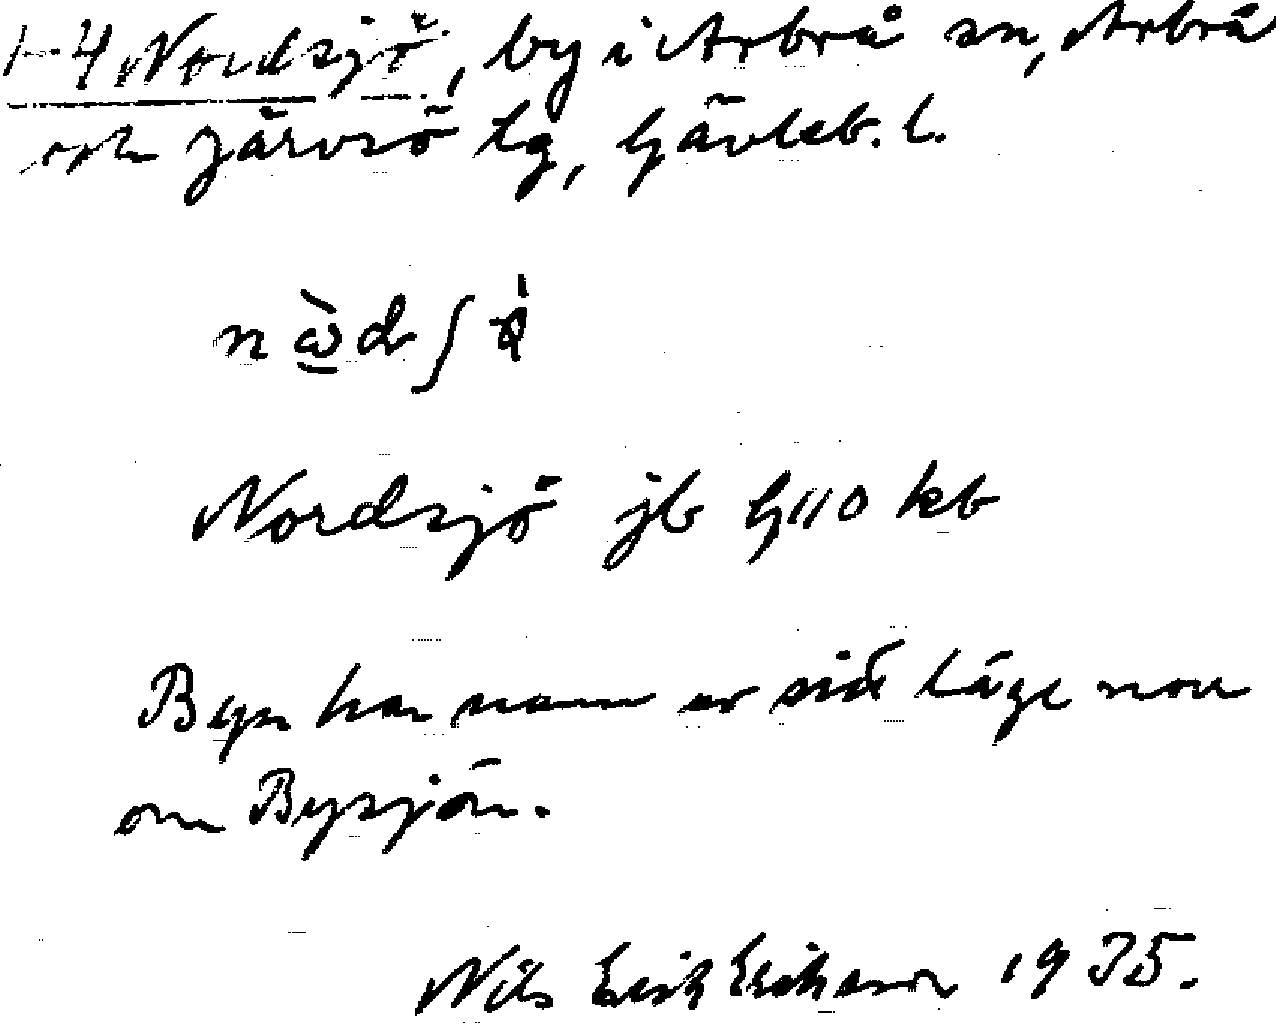 1-4 Nordsjö, by i Arbrå sn, Arbrå
och Järvsö tg, Gävleb. l.
Nordsjö jb G110 kb
Byn har namn av sitt läge norr
om Bysjön.
Nils Erik Eriksson 1935.